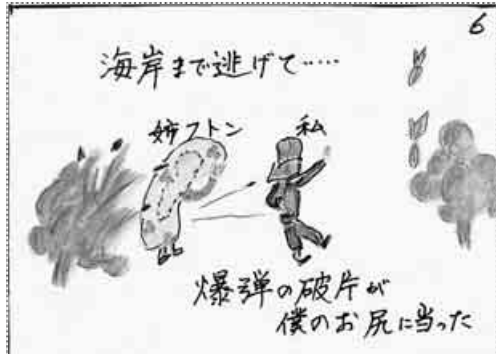 6
海岸まで逃げて……
姉フトン
私
爆弾の破片が
僕のお尻に当った